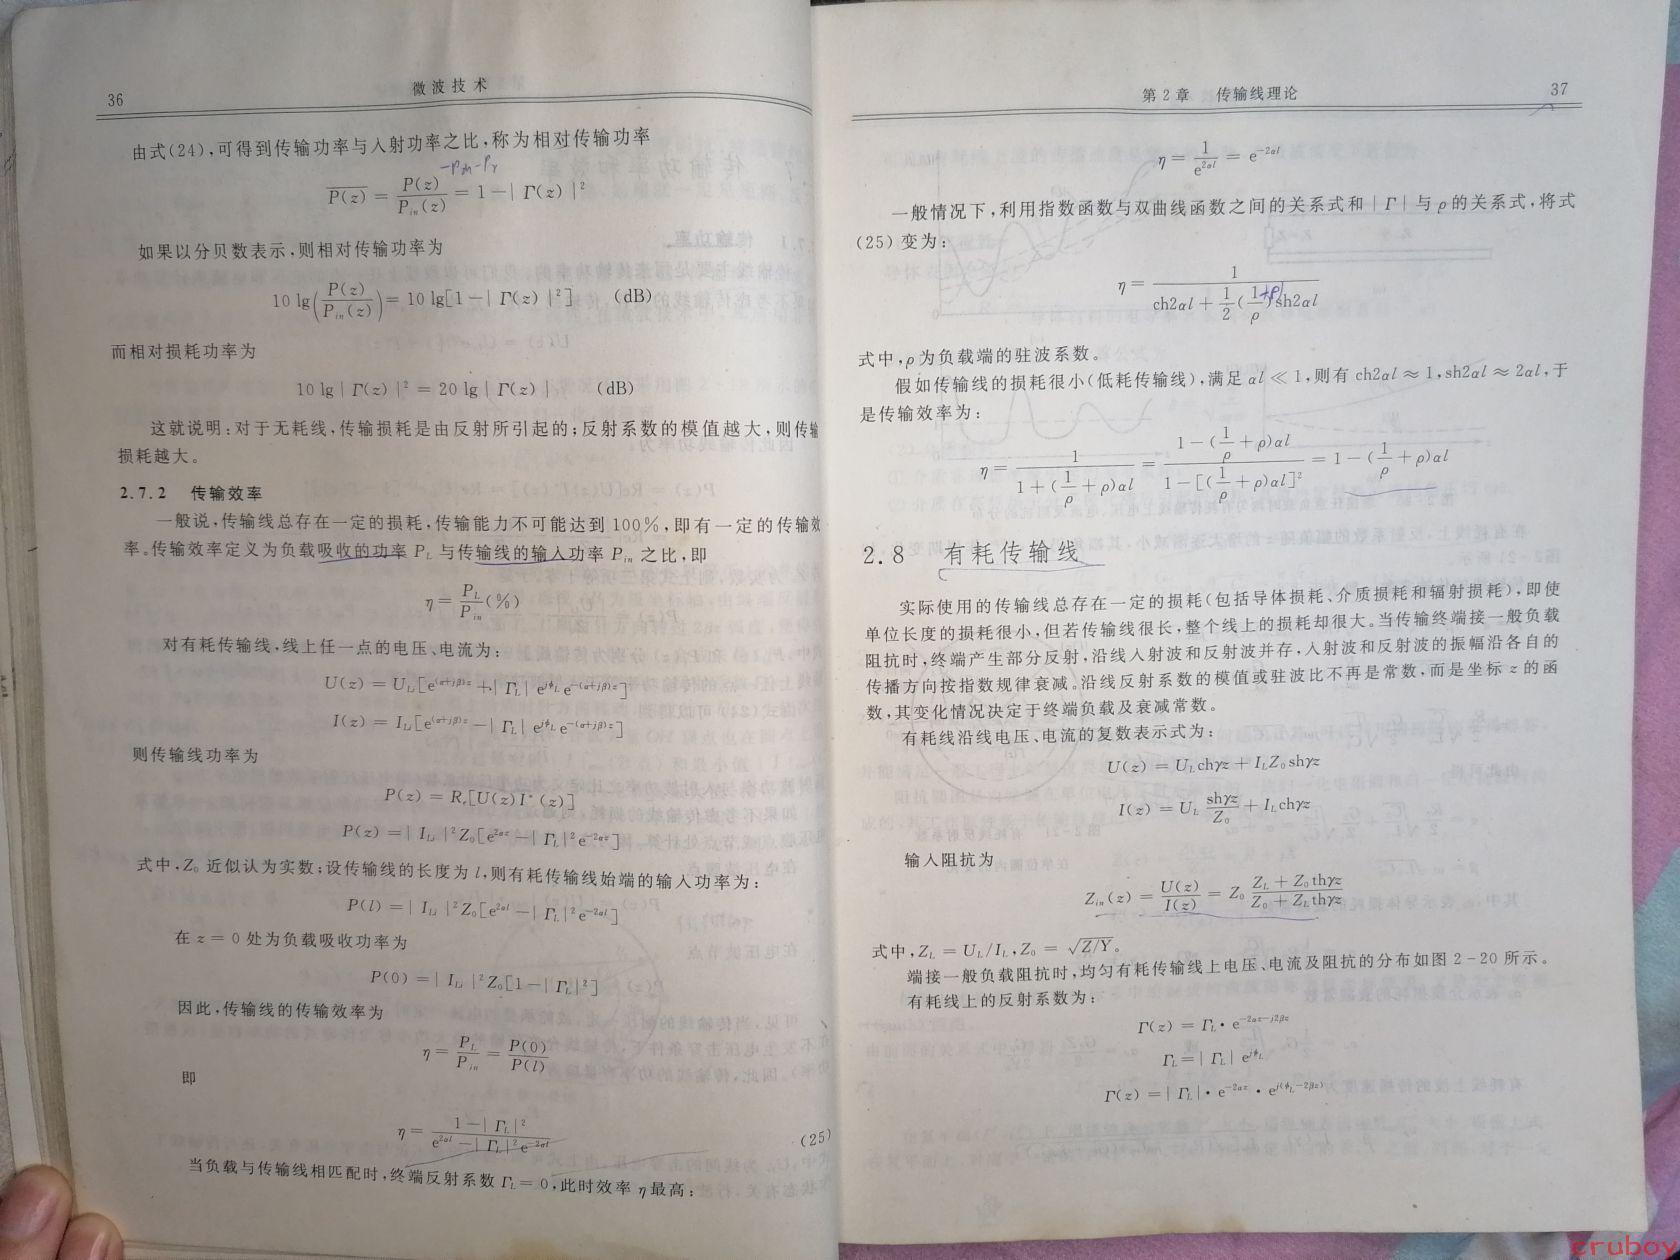 36
微波技术
由式(24),可得到传输功率与入射功率之比,称为相对传输功率
P(z) = P(z)/Pin(z) = 1-|Γ(z)|²
如果以分贝数表示,则相对传输功率为
10 lg(P(z)/Pin(z)) = 10 lg[1-|Γ(z)|²] (dB)
而相对损耗功率为
10 lg|Γ(z)|² = 20 lg|Γ(z)| (dB)
这就说明:对于无耗线,传输损耗是由反射所引起的;反射系数的模值越大,则传输
损耗越大。
2.7.2 传输效率
一般说,传输线总存在一定的损耗,传输能力不可能达到100%,即有一定的传输效
率。传输效率定义为负载吸收的功率 PL 与传输线的输入功率 Pin 之比,即
η = PL/Pin (%)
对有耗传输线,线上任一点的电压、电流为:
U(z) = ULi[e^(α+jβ)z + |ΓL| e^jφL e^-(α+jβ)z]
I(z) = ILi[e^(α+jβ)z - |ΓL| e^jφL e^-(α+jβ)z]
则传输线功率为
P(z) = Re[U(z)I*(z)]
P(z) = |ILi|²Z0[e^2αz - |ΓL|²e^-2αz]
式中,Z0 近似认为实数;设传输线的长度为 l,则有耗传输线始端的输入功率为:
P(l) = |ILi|²Z0[e^2αl - |ΓL|²e^-2αl]
在 z = 0 处为负载吸收功率为
P(0) = |ILi|²Z0[1-|ΓL|²]
因此,传输线的传输效率为
η = PL/Pin = P(0)/P(l)
即
η = (1-|ΓL|²)/(e^2αl - |ΓL|²e^-2αl) (25)
当负载与传输线相匹配时,终端反射系数 ΓL = 0,此时效率 η 最高:
第2章 传输线理论
37
η = 1/e^2αl = e^-2αl
一般情况下,利用指数函数与双曲线函数之间的关系式和|Γ|与ρ的关系式,将式
(25)变为:
η = 1/(ch2αl + 1/2(1/ρ+ρ)sh2αl)
式中,ρ为负载端的驻波系数。
假如传输线的损耗很小(低耗传输线),满足 αl ≪ 1,则有 ch2αl ≈ 1,sh2αl ≈ 2αl,于
是传输效率为:
η = 1/(1+(1/ρ+ρ)αl) = (1-(1/ρ+ρ)αl)/(1-[(1/ρ+ρ)αl]²) = 1-(1/ρ+ρ)αl
2.8 有耗传输线
实际使用的传输线总存在一定的损耗(包括导体损耗、介质损耗和辐射损耗),即使
单位长度的损耗很小,但若传输线很长,整个线上的损耗却很大。当传输终端接一般负载
阻抗时,终端产生部分反射,沿线入射波和反射波并存,入射波和反射波的振幅沿各自的
传播方向按指数规律衰减。沿线反射系数的模值或驻波比不再是常数,而是坐标 z 的函
数,其变化情况决定于终端负载及衰减常数。
有耗线沿线电压、电流的复数表示式为:
U(z) = ULchγz + ILZ0shγz
I(z) = UL shγz/Z0 + ILchγz
输入阻抗为
Zin(z) = U(z)/I(z) = Z0 (ZL + Z0thγz)/(Z0 + ZLthγz)
式中,ZL = UL/IL,Z0 = √(Z/Y)。
端接一般负载阻抗时,均匀有耗传输线上电压、电流及阻抗的分布如图 2-20 所示。
有耗线上的反射系数为:
Γ(z) = ΓL·e^-2αz-j2βz
ΓL = |ΓL| e^jφL
Γ(z) = |ΓL|·e^-2αz·e^j(φL-2βz)
cruboy